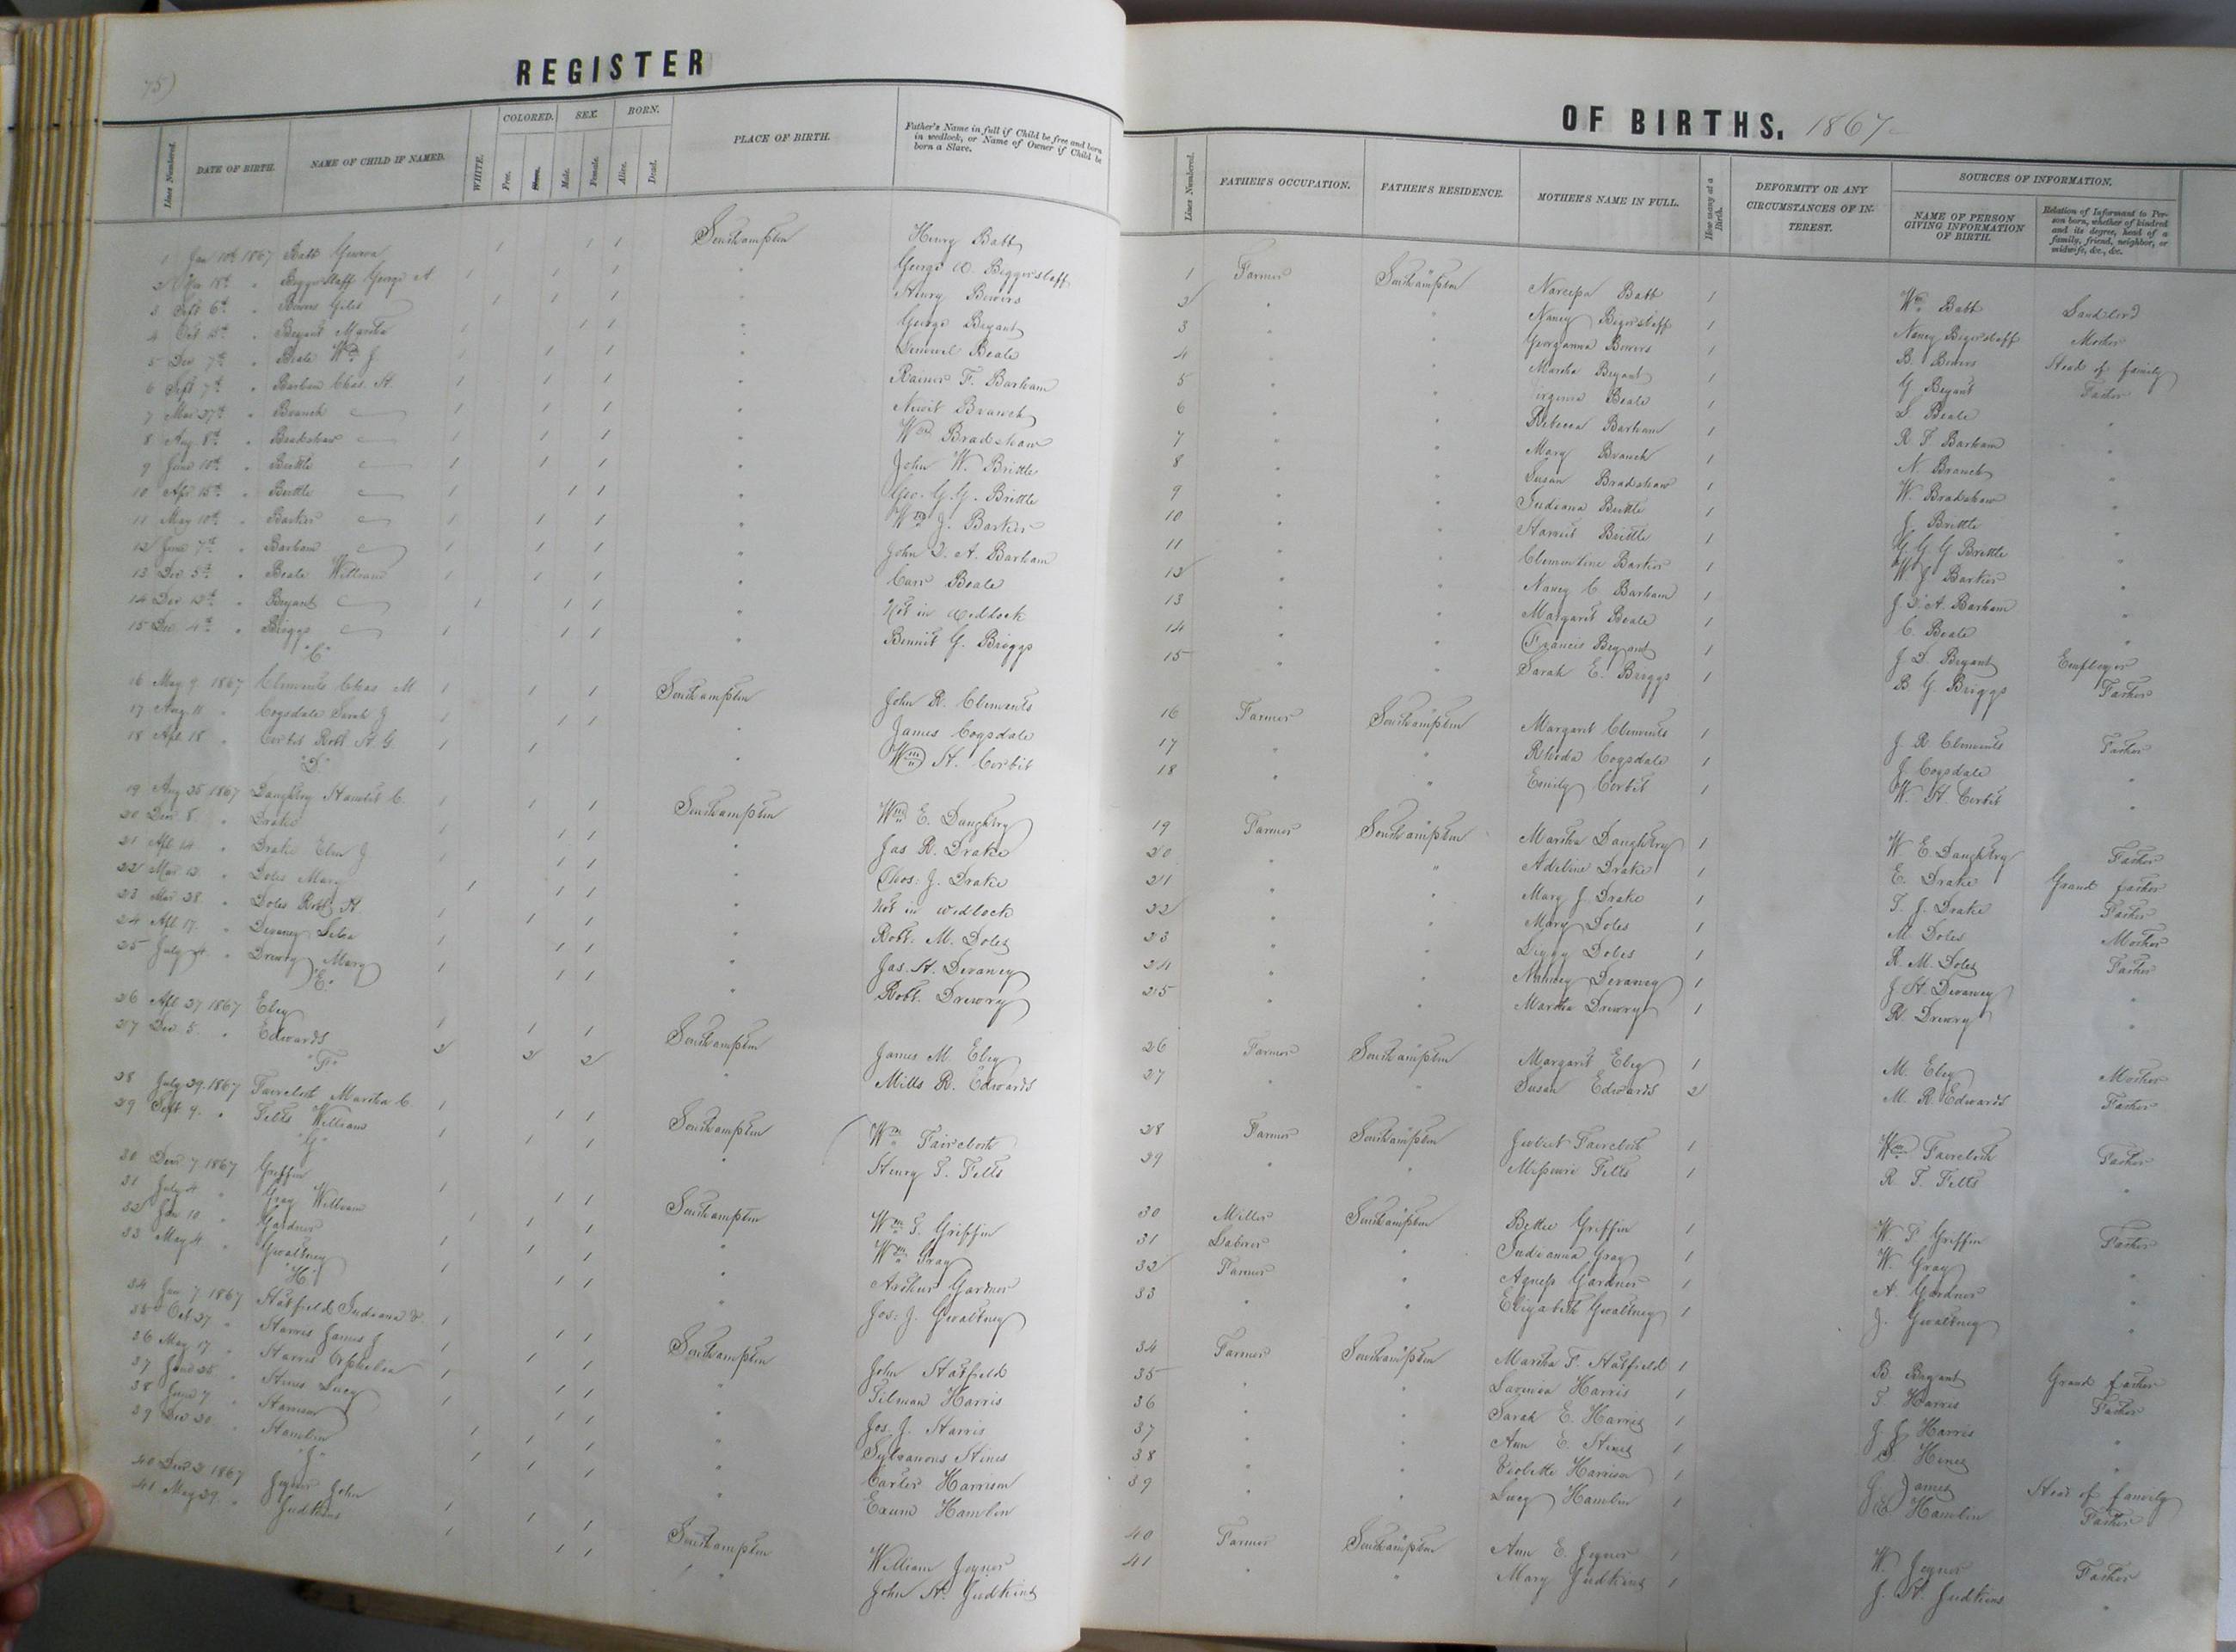 75)
REGISTER
Lines Numbered.
DATE OF BIRTH.
NAME OF CHILD IF NAMED.
WHITE.
COLORED.
Free.
SEX.
Male.
Female.
BORN.
Alive.
Dead.
PLACE OF BIRTH.
Father's Name in full if Child be free and born
in wedlock, or Name of Owner if Child be
born a Slave.
1 Jan 10th 1867 Babb 1 1 1 Southampton Henry Babb
2 Mar 18th " Beggerstaff George A 1 1 1 " George W. Beggerstaff
3 Sept 6th " Bowers Giles 1 1 1 " Henry Bowers
4 Oct 15th " Bryant Martha 1 1 1 " George Bryant
5 Dec 7th " Beale Wm J. 1 1 1 " Lemuel Beale
6 Sept 7th " Barham Chas. H. 1 1 1 " Ramer F. Barham
7 Mar 27th " Branch 1 1 1 " Newit Branch
8 Aug 8th " Bradshaw 1 1 1 " Wm Bradshaw
9 June 10th " Brittle 1 1 1 " John W. Brittle
10 Apr 15th " Brittle 1 1 1 " Geo. G. G. Brittle
11 May 10th " Barker 1 1 1 " Wm J. Barker
12 June 7th " Barham 1 1 1 " John D. A. Barham
13 Dec 5th " Beale William 1 1 1 " Carr Beale
14 Dec 12th " Bryant 1 1 1 " Not in wedlock
15 Dec 4th " Briggs 1 1 1 " Bennit G. Briggs
"C"
16 May 9 1867 Clements Chas M 1 1 1 Southampton John R. Clements
17 Aug 11 " Cogsdale Sarah J 1 1 1 " James Cogsdale
18 Apl 18 " Corbit Robt. H. G. 1 1 " Wm H. Corbit
"D"
19 Aug 25 1867 Daughtry Harriet C. 1 1 1 Southampton Wm E. Daughtry
20 Dec 8 " Drake 1 1 1 " Jas R. Drake
21 Apl 14 " Drake Elva J 1 1 1 " Thos: J. Drake
22 Mar 12 " Doles Mary 1 1 1 " Not in wedlock
23 Mar 28 " Doles Robt H. 1 1 1 " Robt. M. Doles
24 Apl 17 " Devaney 1 1 1 " Jas. H. Devaney
25 July 4 " Drewry Mary 1 1 1 " Robt. Drewry
"E"
26 Apl 27 1867 Eley 1 1 1 Southampton James M. Eley
27 Dec 5 " Edwards 2 2 2 " Mills R. Edwards
"F"
28 July 29 1867 Faircloth Martha C. 1 1 1 Southampton Wm Faircloth
29 Sept 9 " Felts William 1 1 1 " Henry T. Felts
"G"
30 Dec 7 1867 Griffin 1 1 1 Southampton Wm T. Griffin
31 July 4 " Gray William 1 1 1 " Wm Gray
32 Jan 10 " Gardner 1 1 1 " Arthur Gardner
33 May 4 " Gwaltney 1 1 1 " Jos: J. Gwaltney
"H"
34 Jan 7 1867 Hatfield Indiana 1 1 1 Southampton John Hatfield
35 Oct 27 " Harris James J 1 1 1 " Tilman Harris
36 May 17 " Harris Orphelia 1 1 1 " Jos. J. Harris
37 June 25 " Hines Lucy 1 1 1 " Sylvanous Hines
38 June 7 " Harrison 1 1 1 " Carter Harrison
39 Dec 20 " Hamblin 1 1 1 " Exum Hamblin
"J"
40 Dec 2 1867 Joyner John 1 1 1 Southampton William Joyner
41 May 29 " Judkins 1 1 1 " John H. Judkins
OF BIRTHS. 1867
Lines Numbered.
FATHER'S OCCUPATION.
FATHER'S RESIDENCE.
MOTHER'S NAME IN FULL.
How many at a Birth.
DEFORMITY OR ANY
CIRCUMSTANCES OF IN-
TEREST.
SOURCES OF INFORMATION.
NAME OF PERSON
GIVING INFORMATION
OF BIRTH.
Relation of Informant to Per-
son born, whether of kindred
and its degree, head of a
family, friend, neighbor, or
midwife, &c., &c.
1 Farmer Southampton Narcissa Babb 1 Wm Babb Landlord
2 " " Nancy Begerstaff 1 Nancy Begerstaff Mother
3 " " Georganna Bowers 1 B. Bowers Head of family
4 " " Martha Bryant 1 G Bryant Father
5 " " Virginia Beale 1 L Beale "
6 " " Rebecca Barham 1 R F Barham "
7 " " Mary Branch 1 N. Branch "
8 " " Susan Bradshaw 1 W Bradshaw "
9 " " Indiana Brittle 1 J. Brittle "
10 " " Harriet Brittle 1 G. G. G Brittle "
11 " " Clementine Barker 1 W J Barker "
12 " " Nancy C. Barham 1 J. D. A. Barham "
13 " " Margaret Beale 1 C. Beale "
14 " " Francis Bryant 1 J D. Bryant Employer
15 " " Sarah E. Briggs 1 B. G. Briggs Father
16 Farmer Southampton Margaret Clements 1 J. R. Clements Father
17 " " Rhoda Cogsdale 1 J Cogsdale "
18 " " Emily Corbit 1 W. H. Corbit "
19 Farmer Southampton Martha Daughtry 1 W E Daughtry Father
20 " " Adeline Drake 1 E. Drake Grand father
21 " " Mary J. Drake 1 T. J. Drake Father
22 " " Mary Doles 1 M Doles Mother
23 " " Doles 1 R. M. Doles Father
24 " " Devaney 1 J. H. Devaney "
25 " " Martha Drewry 1 R. Drewry "
26 Farmer Southampton Margaret Eley 1 M. Eley Mother
27 " " Susan Edwards 2 M. R. Edwards Father
28 Farmer Southampton Juliet Faircloth 1 Wm Faircloth Father
29 " " Missouri Felts 1 R. T. Felts "
30 Miller Southampton Bettie Griffin 1 W. T Griffin Father
31 Laborer " Indianna Gray 1 W. Gray "
32 Farmer " Agness Gardner 1 A. Gardner "
33 " " Elizabeth Gwaltney 1 J. Gwaltney "
34 Farmer Southampton Martha F. Hatfield 1 B. Bryant Grand father
35 " " Lavinia Harris 1 T Harris Father
36 " " Sarah E. Harris 1 J. J. Harris "
37 " " Ann E. Hines 1 S. Hines "
38 " " Violette Harrison 1 G James Head of family
39 " " Lucy Hamblin 1 E Hamblin Father
40 Farmer Southampton Ann E. Joyner 1 W. Joyner Father
41 " " Mary Judkins 1 J. H. Judkins "